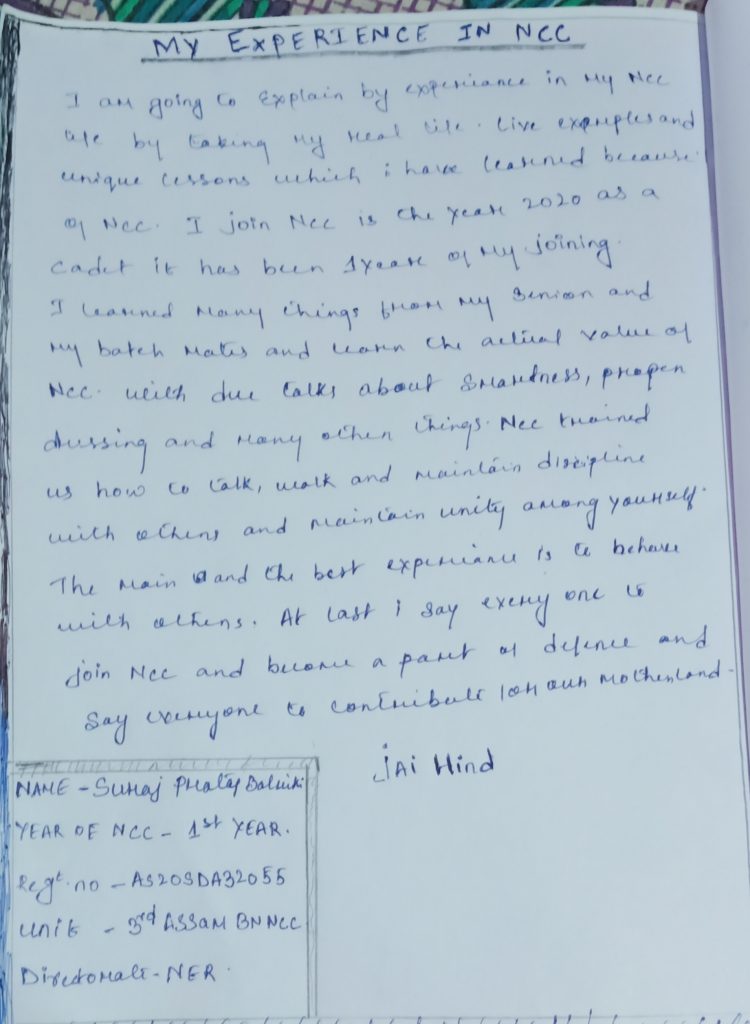 MY EXPERIENCE IN NCC
I am going to Explain by experiance in my Ncc
life by taking my real life. Live examples and
unique lessons which i have learned because
of Ncc. I join Ncc is the year 2020 as a
cadet it has been 1 year of my joining.
I learned many things from my senior and
my batch mates and learn the actual value of
Ncc. with due talks about smartness, proper
dressing and many other things. Ncc trained
us how to talk, walk and maintain discipline
with others and maintain unity among yourself.
The main and the best experiance is to behave
with others. At last i say every one to
join Ncc and become a part of defence and
say everyone to contribute for our motherland-
Jai Hind
NAME - Suraj Pratap Balmiki
YEAR OF NCC - 1st YEAR.
Regt. no - AS20SDA32055
unit - 3rd ASSAM BN NCC
Directorate - NER.